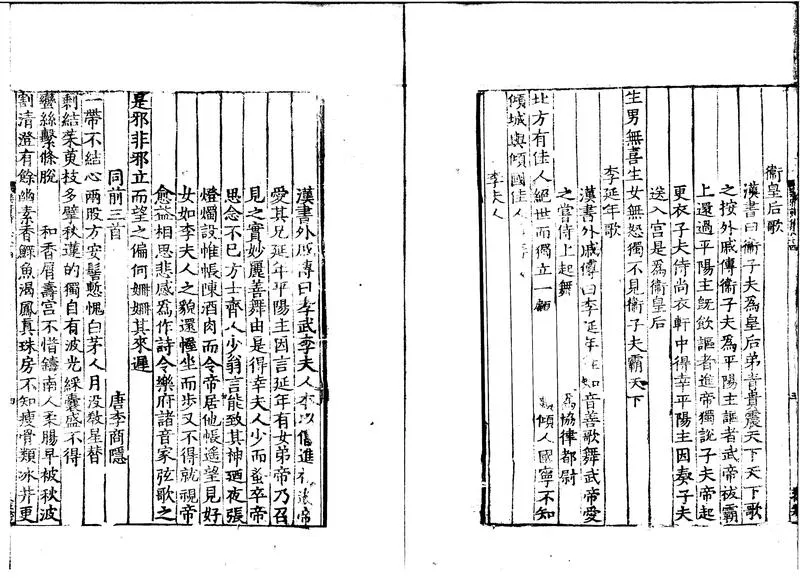 衞皇后歌
漢書曰衞子夫爲皇后弟青貴震天下天下歌
之按外戚傳衞子夫爲平陽主謳者武帝祓霸
上還過平陽主旣飲謳者進帝獨說子夫帝起
更衣子夫侍尚衣軒中得幸平陽主因奏子夫
送入宮是爲衞皇后
生男無喜生女無怒獨不見衞子夫霸天下
李延年歌
漢書外戚傳曰李延年 知音善歌舞武帝愛
之嘗侍上起舞 爲協律都尉
北方有佳人絕世而獨立一顧 傾人國寧不知
傾城與傾國佳人
李夫人
漢書外戚傳曰孝武李夫人本以倡進 帝
愛其兄延年平陽主因言延年有女弟帝乃召
見之實妙麗善舞由是得幸夫人少而蚤卒帝
思念不已方士齊人少翁言能致其神迺夜張
燈燭設帷帳陳酒肉而令帝居他帳遙望見好
女如李夫人之貌還幄坐而步又不得就視帝
愈益相思悲感爲作詩令樂府諸音家弦歌之
是邪非邪立而望之偏何姍姍其來遲
同前三首 唐李商隱
一帶不結心兩股方安髻慙愧白茅人月沒敎星替
剩結茱萸枝多擘秋蓮的獨自有波光綵囊盛不得
蠻絲繫條脫 和香屑壽宮不惜鑄南人柔腸早被秋波
割清澄有餘幽素香鰥魚渴鳳真珠房不知瘦骨類冰井更